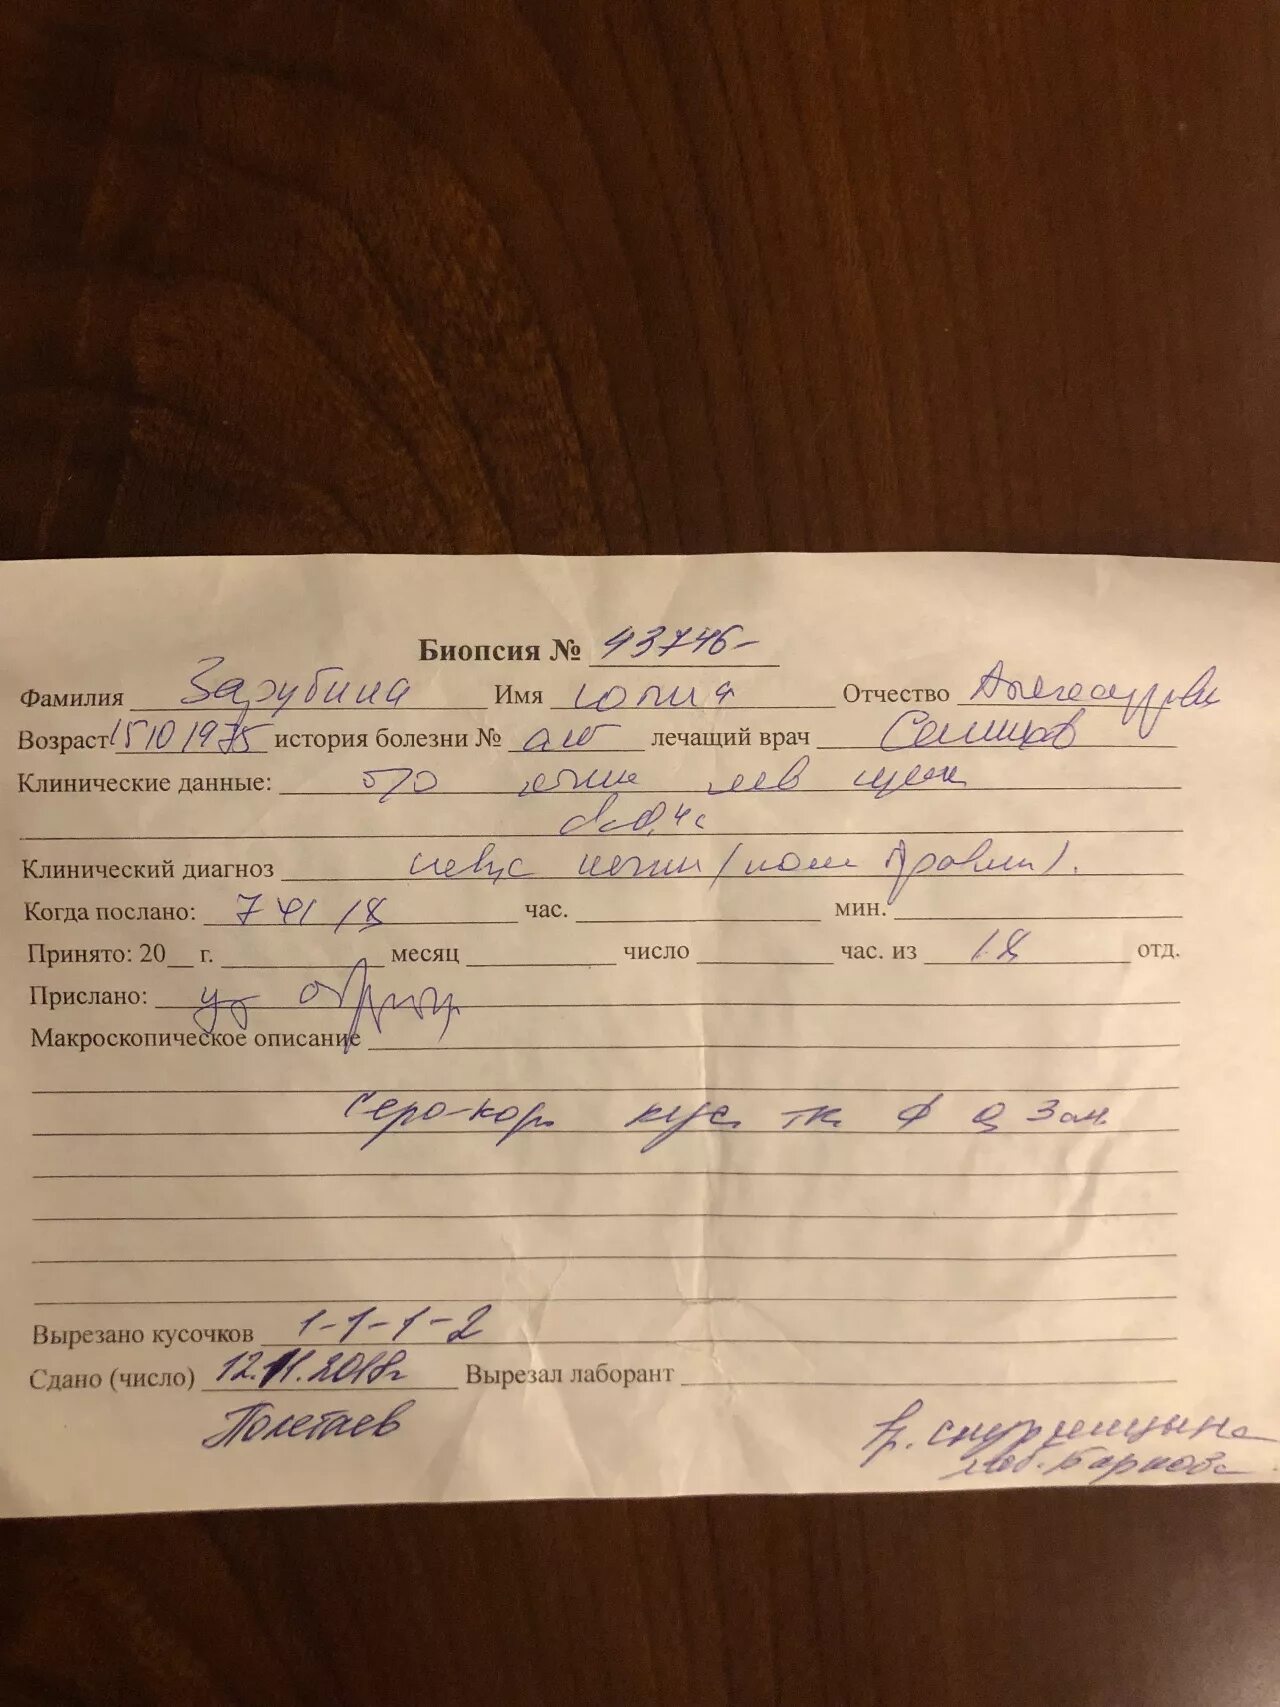 Биопсия № 43746-
Фамилия Зарубина Имя Юлия Отчество
Возраст 15 10 1975 история болезни № амб лечащий врач
Клинические данные: лев щеки
d 0,4с
Клинический диагноз невус кожи (
Когда послано: 7 XI 18 час. мин.
Принято: 20__ г. месяц число час. из 18 отд.
Прислано:
Макроскопическое описание
серо-кор. кус. тк ф 0,3 см.
Вырезано кусочков 1-1-1-2
Сдано (число) 12.11.2018г Вырезал лаборант
Полетаев
вр.
лаб.